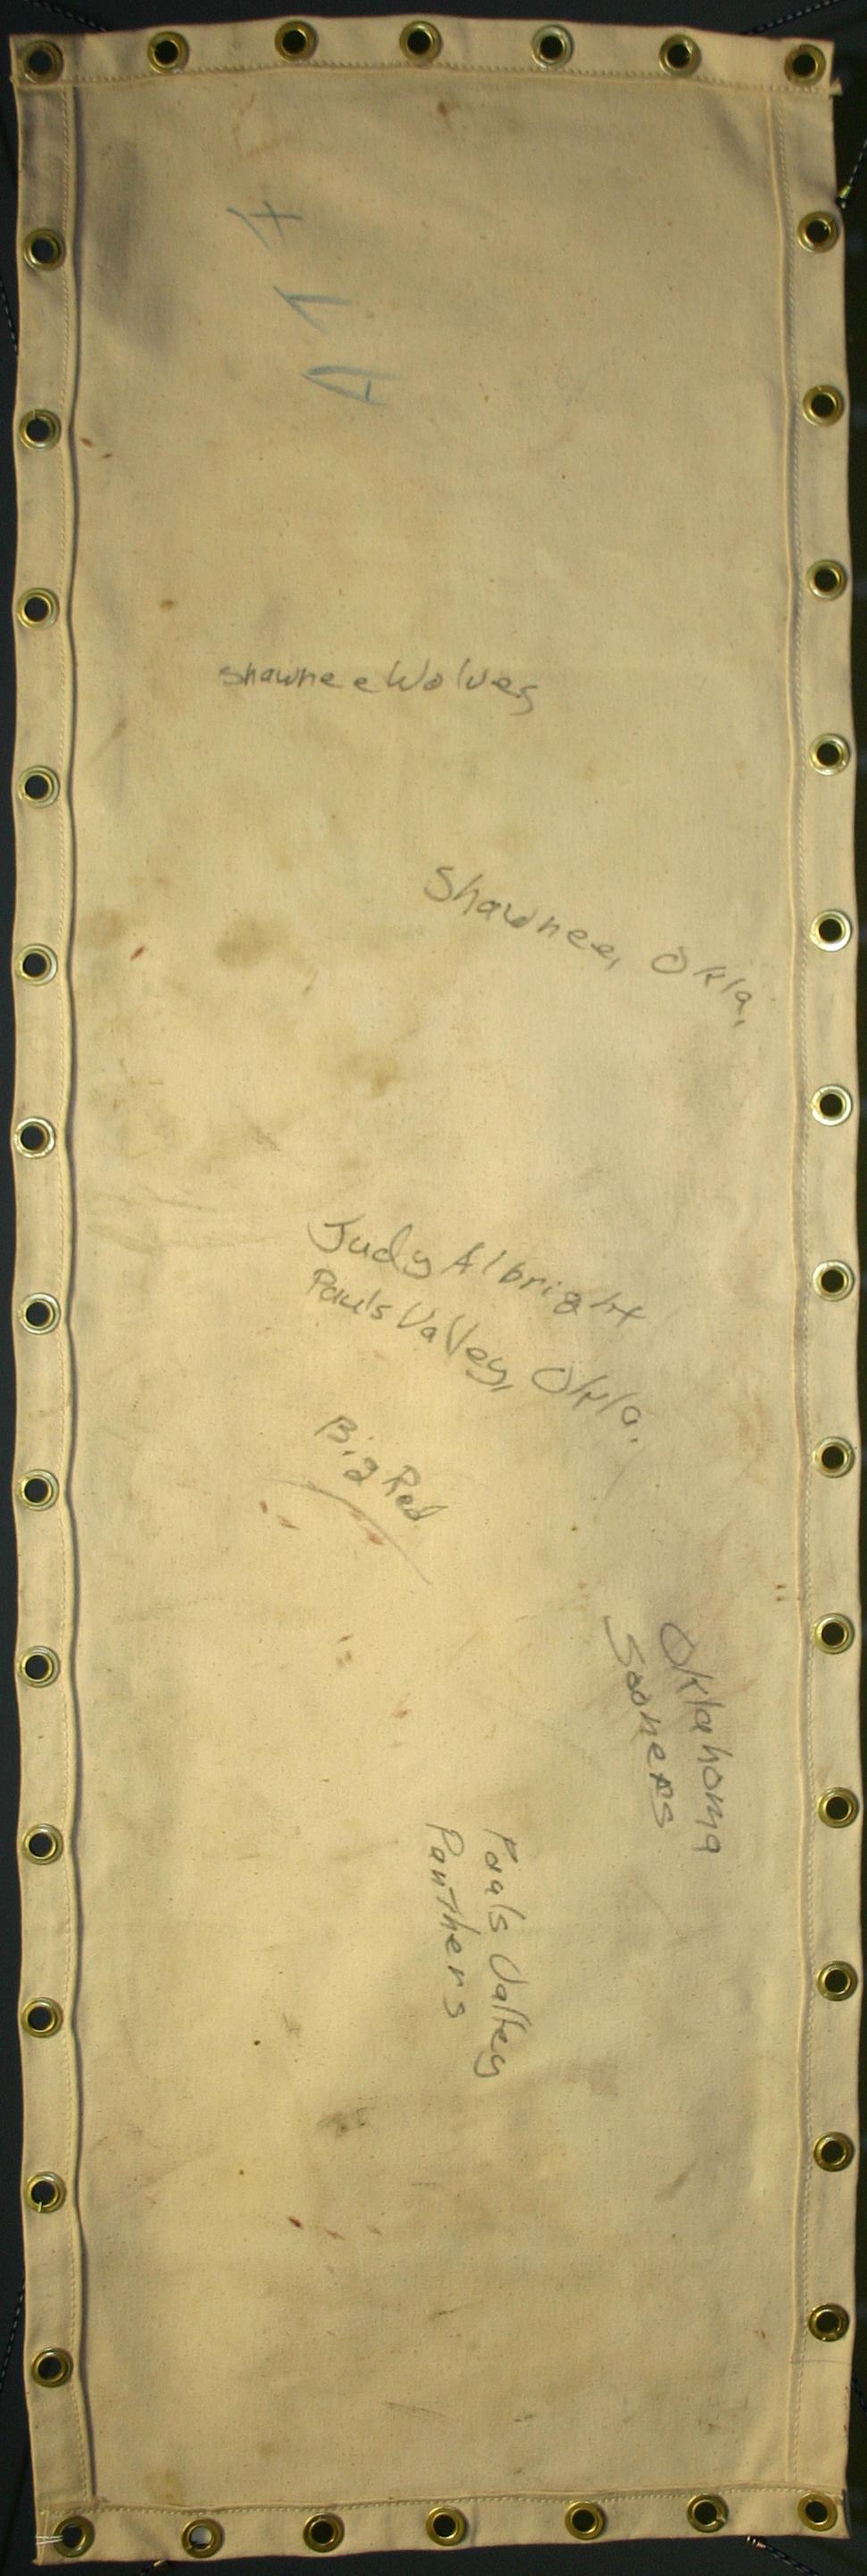 A 1 7
Shawnee Wolves
Shawnee, Okla.
Judy Albright
Pauls Valley, Okla.
Big Red
Oklahoma
Sooners
Pauls Valley
Panthers